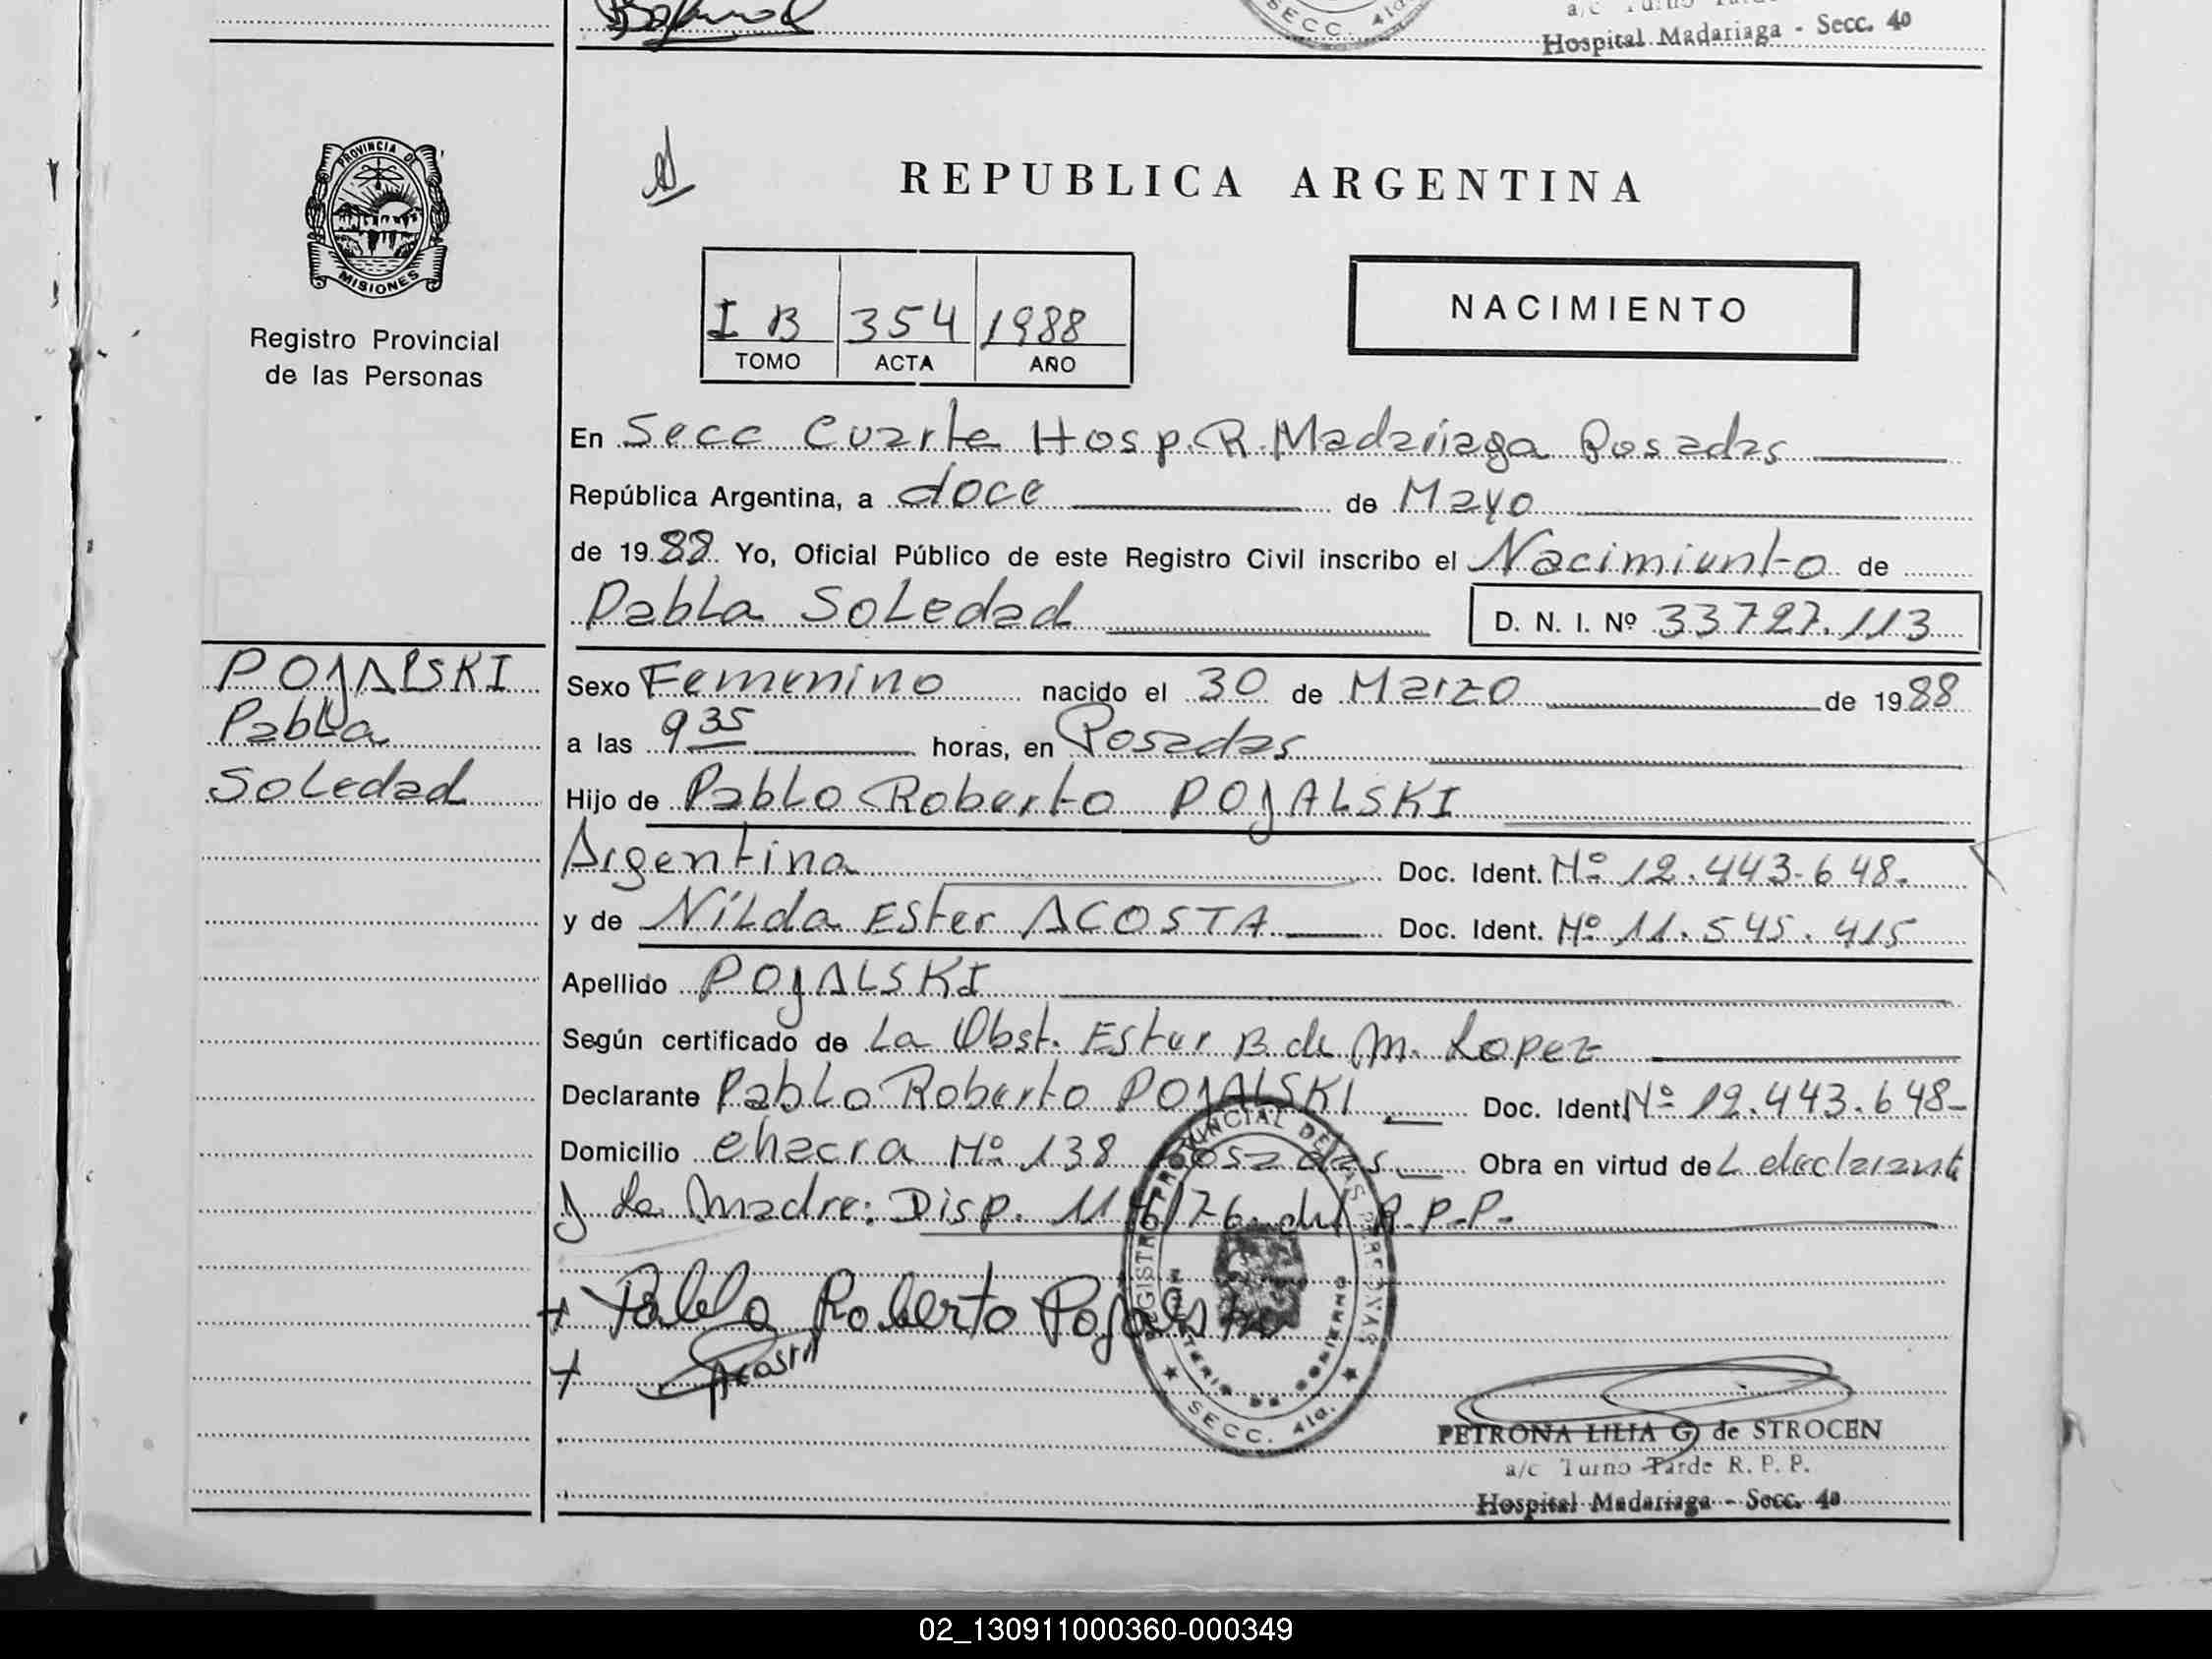 a/c Turno Tarde
SECC. 4ta.
Hospital Madariaga - Secc. 4a
PROVINCIA DE
MISIONES
Registro Provincial
de las Personas
REPUBLICA ARGENTINA
I B 354 1988
TOMO ACTA AÑO
NACIMIENTO
En Secc Cuarta Hosp. R. Madariaga Posadas
República Argentina, a doce de Mayo
de 1988 Yo, Oficial Público de este Registro Civil inscribo el Nacimiento de
Pabla Soledad D. N. I. Nº 33727.113
POJALSKI
Pabla
Soledad
Sexo Femenino nacido el 30 de Marzo de 1988
a las 9 35 horas, en Posadas
Hijo de Pablo Roberto POJALSKI
Argentina Doc. Ident. Nº 12.443.648.
y de Nilda Ester ACOSTA Doc. Ident. Nº 11.545.415
Apellido POJALSKI
Según certificado de La Obst. Ester B de M. Lopez
Declarante Pablo Roberto POJALSKI Doc. Ident. Nº 12.443.648-
Domicilio chacra Nº 138 Posadas Obra en virtud de L declarante
y La Madre: Disp. 114/76 del R.P.P.
+ Pablo Roberto Pojalski
+ Acosta
REGISTRO PROVINCIAL DE LAS PERSONAS
MINISTERIO DE GOBIERNO
SECC. 4ta.
PETRONA LILIA G de STROCEN
a/c Turno Tarde R. P. P.
Hospital Madariaga - Secc. 4a
02_130911000360-000349